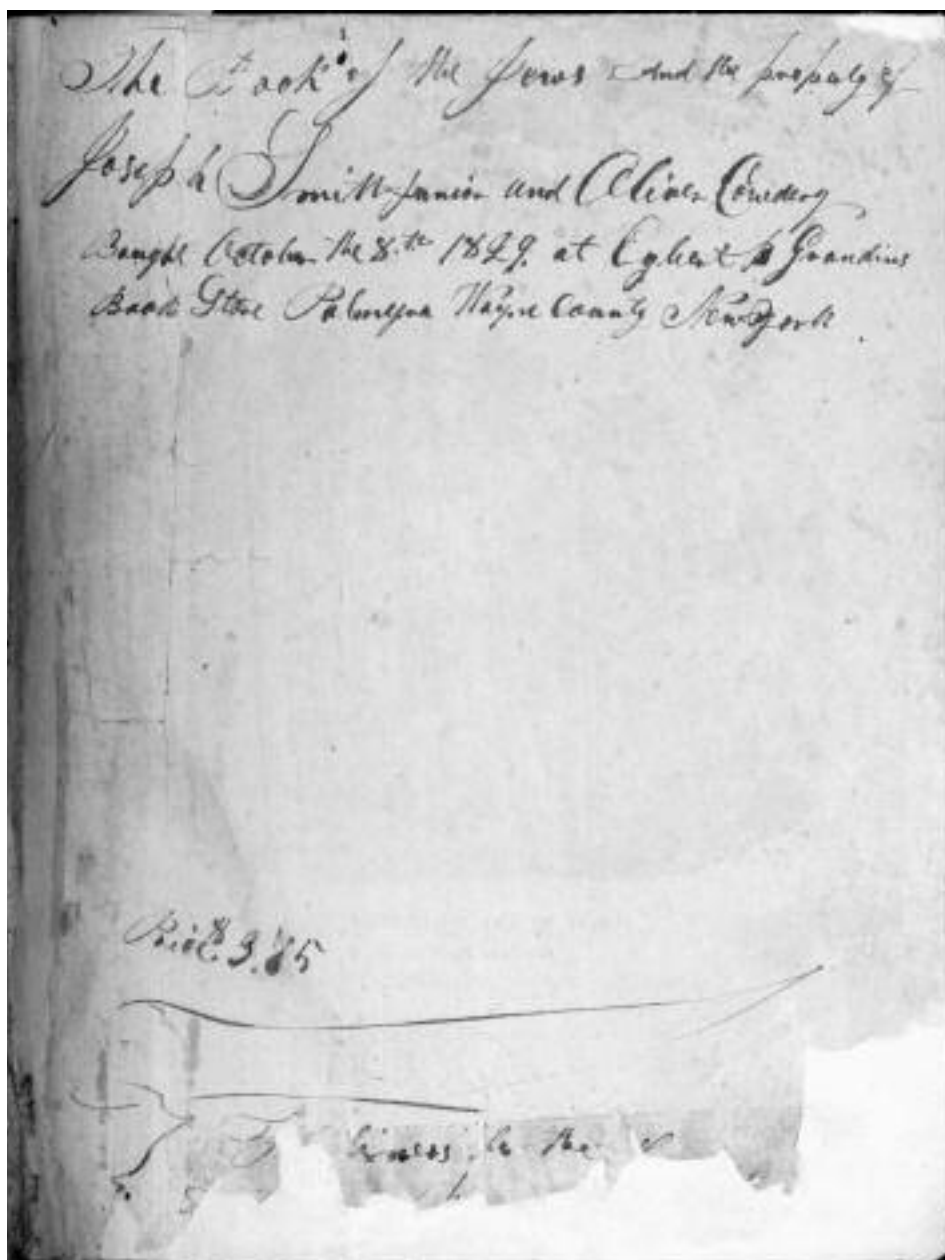 The Book of the Jews and the property of
Joseph Smith Junior and Oliver Cowdery
Bought October the 8th 1829. at Egbert B Grandins
Book Store Palmyra Wayne County New York.
Price. $3.75
to the